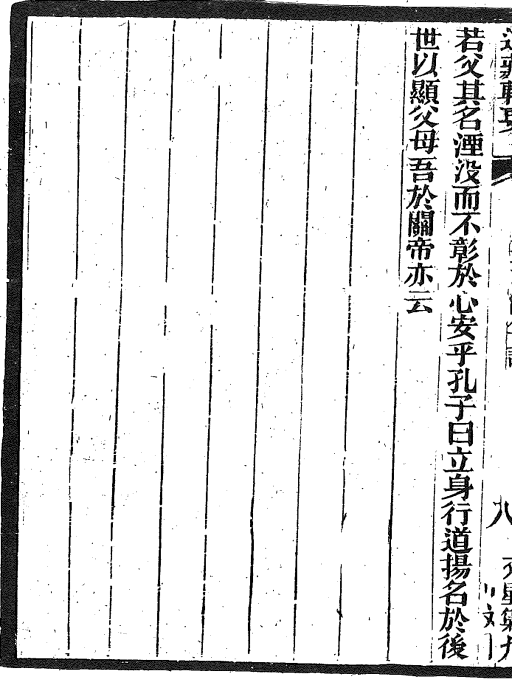 若父其名湮没而不彰於心安乎孔子曰立身行道揚名於後
世以顯父母吾於關帝亦云